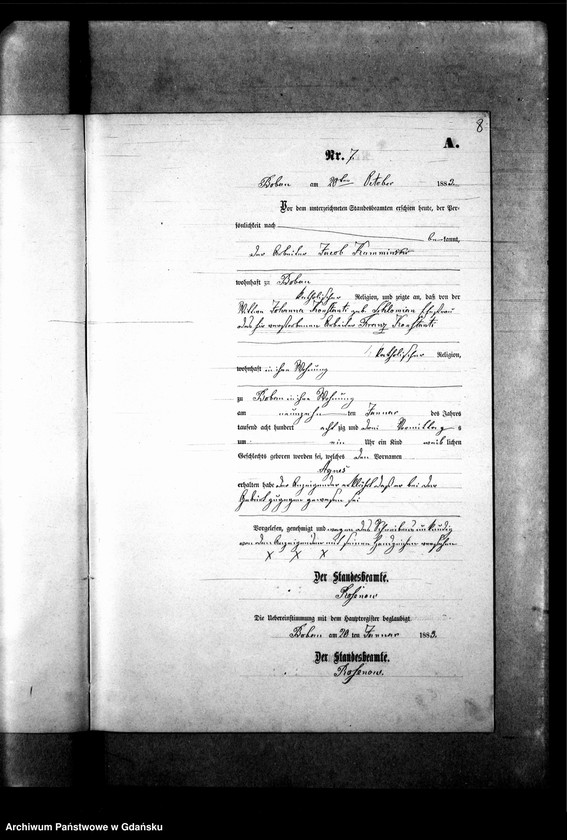 8
A.
Nr. 7.
Boban am 20ten 1883.
Vor dem unterzeichneten Standesbeamten erschien heute, der Per-
sönlichkeit nach
be kannt,
der Arbeiter Jacob
wohnhaft zu Boban
katholischer Religion, und zeigte an, daß von der
Wittwe Johanna geb. Ehefrau
des verstorbenen Arbeiter Franz
katholischer Religion,
wohnhaft in ihrer Wohnung
zu Boban in ihrer Wohnung
am neunzehn ten Januar des Jahres
tausend acht hundert acht zig und drei Vormittag s
um ein Uhr ein Kind weib lichen
Geschlechts geboren worden sei, welches den Vornamen
Agnes
erhalten habe der Anzeigende erklärt daß er bei der
Geburt zugegen gewesen sei
Vorgelesen, genehmigt und wegen des Schreibens unkundig
von dem Anzeigenden mit seinem Handzeichen versehen
X X X
Der Standesbeamte.
Rosenow
Die Uebereinstimmung mit dem Hauptregister beglaubigt
Boban am 20 ten Januar 1883.
Der Standesbeamte.
Rosenow.
Archiwum Państwowe w Gdańsku